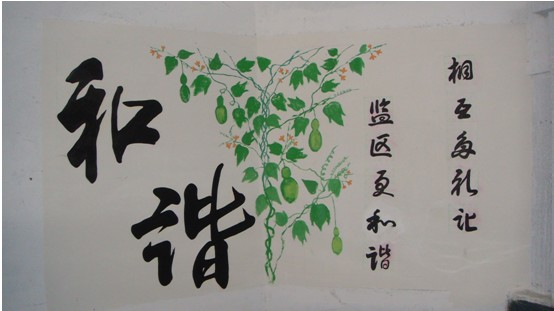 和谐
相互多礼让
监区更和谐